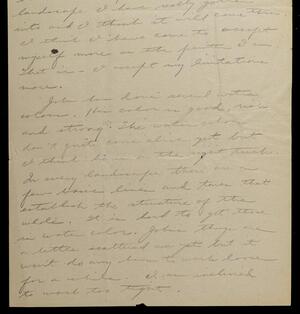 landscape I have really gotten
into and I think it will come thru
I think I have come to accept
myself more as the painter I am
That is - I accept my limitations
more.
John has done several water
colors. His color is good, rich
and strong. The water colors
don't quite come alive yet but
I think he is on the right track.
In every landscape there are a
few basic lines and tones that
establish the structure of the
whole. It is hard to get those
in water color. John's things are
a little scattered as yet but it
won't do any harm to work loose
for a while. I am inclined
to work too tight.